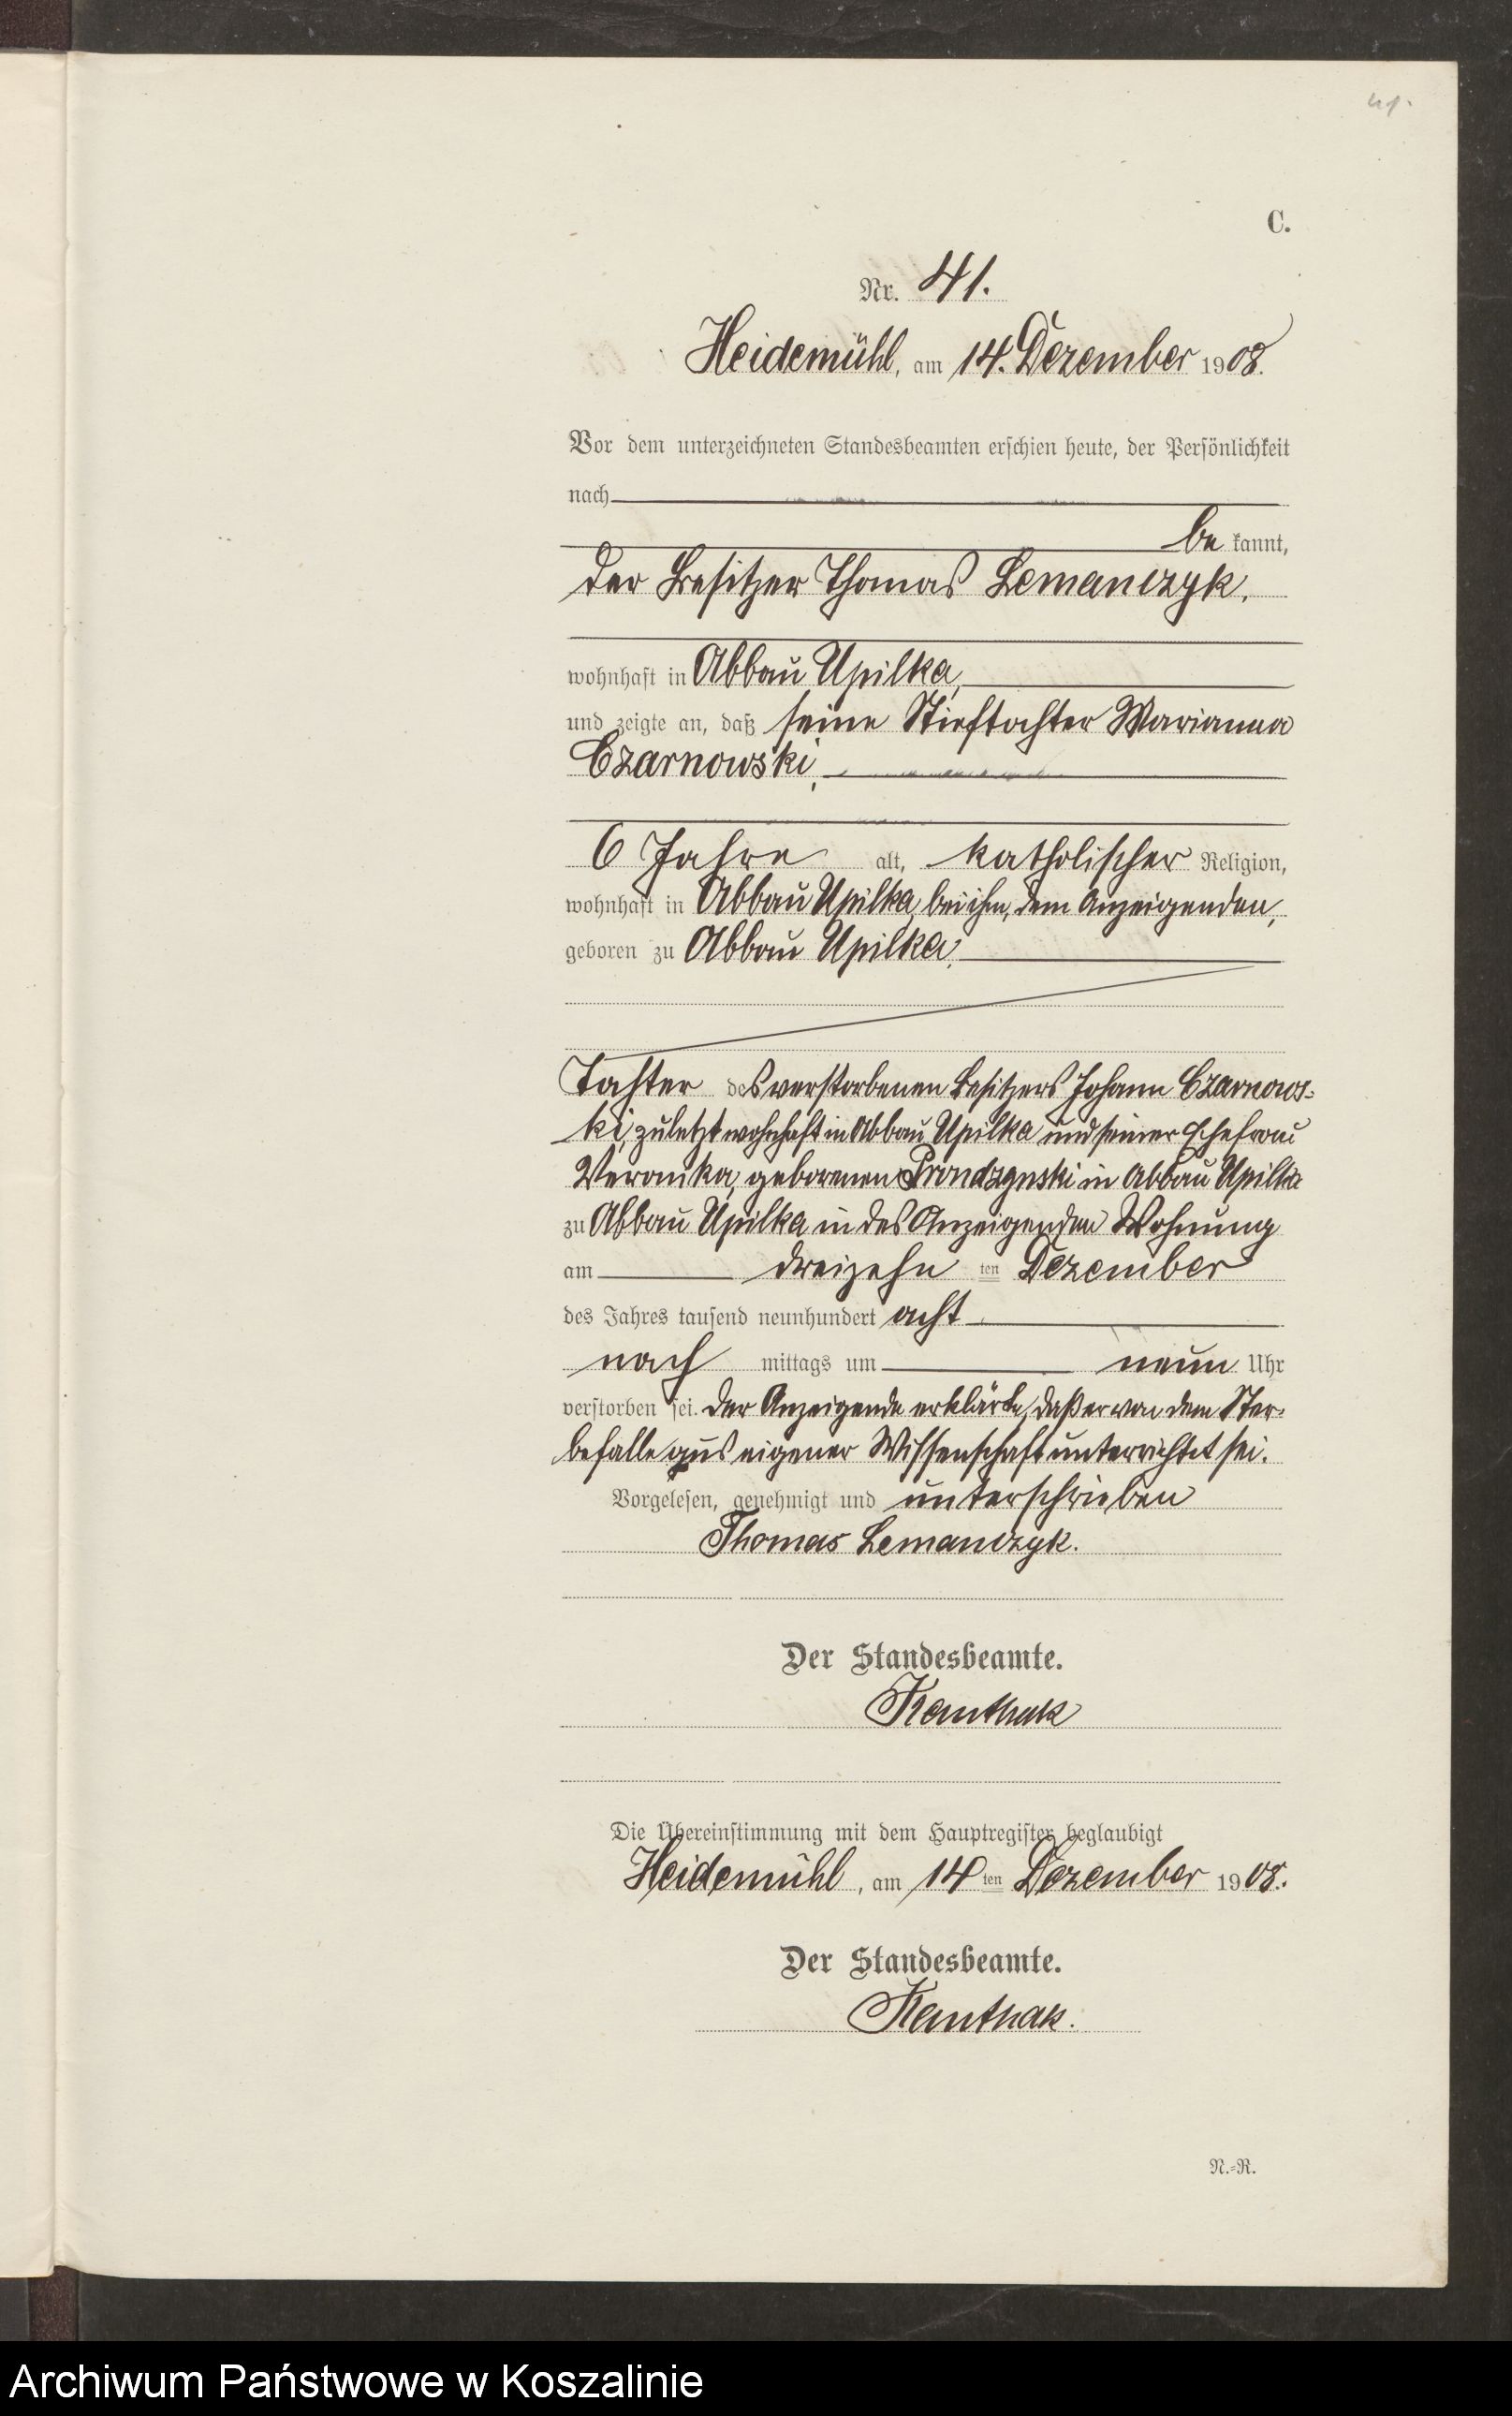 41.
C.
Nr. 41.
Heidemühl, am 14. Dezember 1908.
Vor dem unterzeichneten Standesbeamten erschien heute, der Persönlichkeit
nach
be kannt,
der Besitzer Thomas Lemanczyk,
wohnhaft in Abbau Upilka,
und zeigte an, daß seine Stieftochter Marianna
Czarnowski,
6 Jahre alt, katholischer Religion,
wohnhaft in Abbau Upilka, bei ihm, dem Anzeigenden,
geboren zu Abbau Upilka,
Tochter des verstorbenen Besitzers Johann Czarnows-
ki, zuletzt wohnhaft in Abbau Upilka und seiner Ehefrau
Veronika, geborenen Prondzynski in Abbau Upilka
zu Abbau Upilka in des Anzeigenden Wohnung
am dreizehn ten Dezember
des Jahres tausend neunhundert acht
nach mittags um neun Uhr
verstorben sei. Der Anzeigende erklärte, daß er von dem Ster-
befalle aus eigener Wissenschaft unterrichtet sei.
Vorgelesen, genehmigt und unterschrieben
Thomas Lemanczyk.
Der Standesbeamte.
Kanthak
Die Übereinstimmung mit dem Hauptregister beglaubigt
Heidemühl, am 14 ten Dezember 1908.
Der Standesbeamte.
Kanthak.
N.-R.
Archiwum Państwowe w Koszalinie